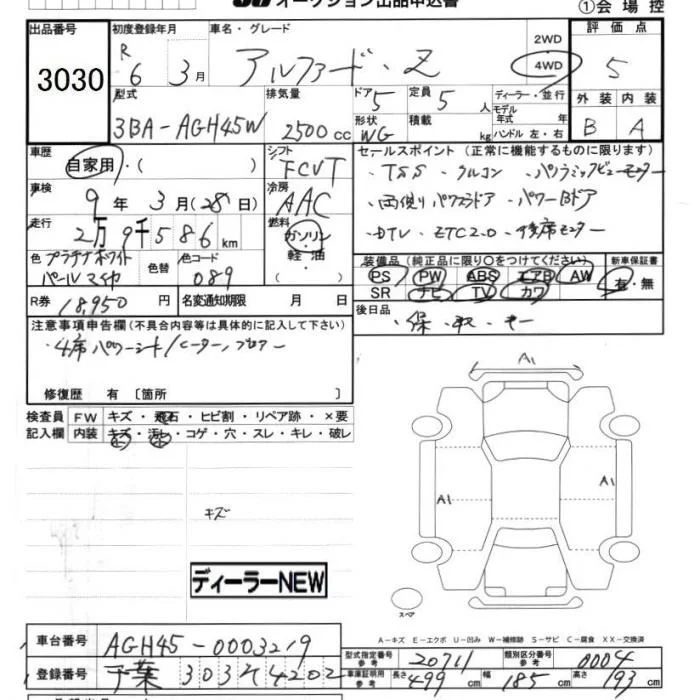 オークション出品申込書
①会場控
出品番号 3030
初度登録年月 R 6 3月
車名・グレード アルファード・Z
2WD 4WD
評価点 5
型式 3BA-AGH45W
排気量 2500cc
ドア 5 形状 WG
定員 5人 積載 kg
ディーラー・並行
モデル年式 年式
ハンドル 左・右
外装 B 内装 A
車歴 自家用・( )
シフト FCVT
車検 9年3月(28日)
冷房 AAC
走行 2万9千586km
燃料 ガソリン 軽油
色 プラチナホワイトパールマイカ 色替 色コード 089
R券 18,950円 名変通知期限 月 日
セールスポイント(正常に機能するものに限ります)
・TSS ・クルコン ・パノラミックビューモニター
・両側パワースラドア ・パワーBドア
・DTV ・ETC2.0 ・後席モニター
装備品(純正品に限り○をつけてください) 新車保証書
PS PW ABS エアB AW 有・無
SR ナビ TV カワ
後日品 ・保・取・キー
注意事項申告欄(不具合内容等は具体的に記入して下さい)
・4席パワーシート/ヒーター,
修復歴 有 〔箇所 〕
検査員 FW キズ・飛石・ヒビ割・リペア跡・×要
記入欄 内装 キズ・汚れ・コゲ・穴・スレ・キレ・破レ
キズ
ディーラーNEW
A1
A1
A1
スペア
A-キズ E-エクボ U-凹み W-補修跡 S-サビ C-腐食 XX-交換済
車台番号 AGH45-0003219
型式指定番号 参考 20711 類別区分番号 参考 0004
登録番号 千葉 303 そ 4202
車庫証明用 参考 長さ 499cm 幅 185cm 高さ 193cm